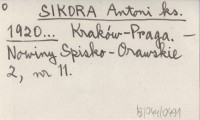 SIKORA Antoni ks.
1920... Kraków-Praga. –
Nowiny Spisko-Orawskie
2, nr 11.